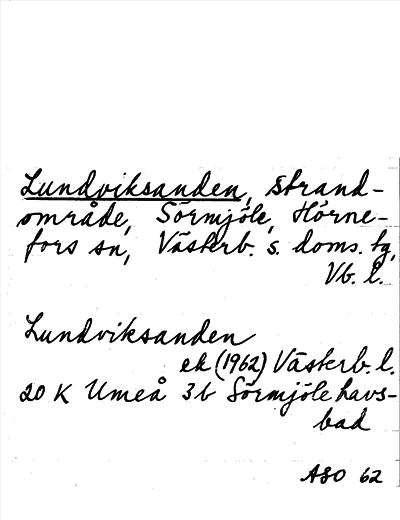 Lundviksanden, strand-
område, Sörmjöle, Hörne-
fors sn, Västerb. s. doms. tg,
Vb. l.
Lundviksanden
ek (1962) Västerb. l.
20 K Umeå 3b Sörmjöle havs-
bad
ASO 62